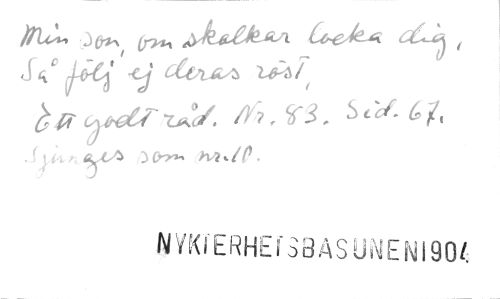 Min son, om skalkar locka dig,
Så följ ej deras röst,
Ett godt råd. Nr. 83. Sid. 67.
Sjunges som nr. 10.
NYKTERHETSBASUNEN 1904